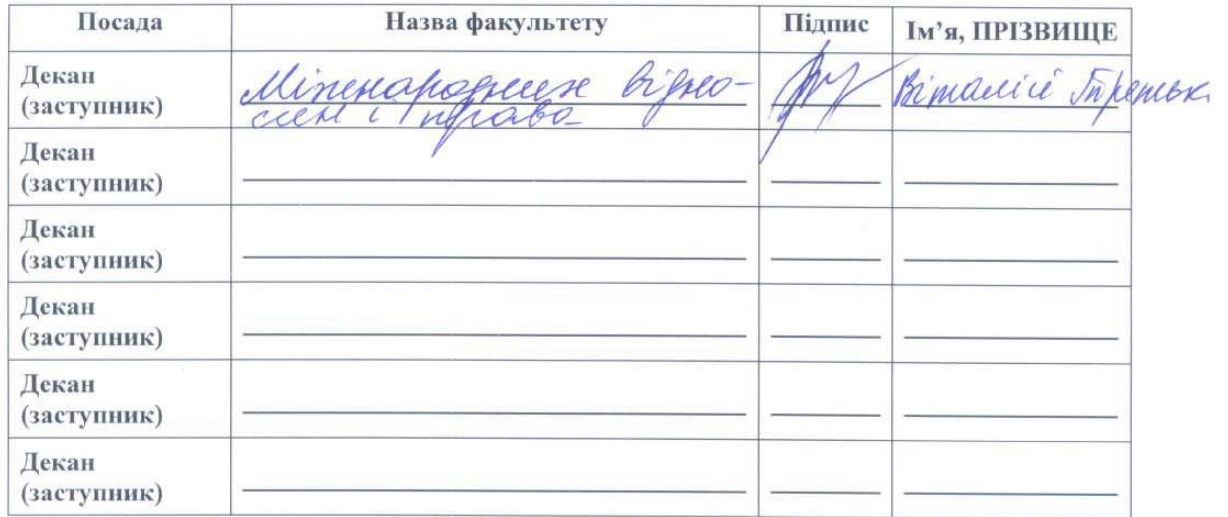 Посада Назва факультету Підпис Ім’я, ПРІЗВИЩЕ
Декан
(заступник) Міжнародних відно-
син і права Віталій Третьк
Декан
(заступник)
Декан
(заступник)
Декан
(заступник)
Декан
(заступник)
Декан
(заступник)